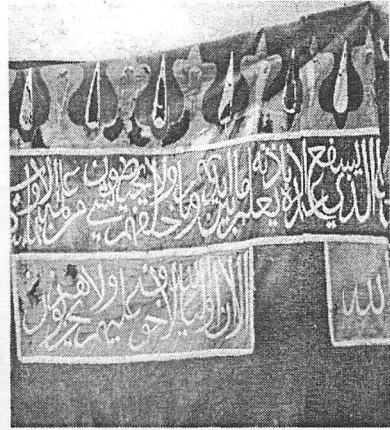 الذي يشفع عنده إلا بإذنه يعلم ما بين أيديهم وما خلفهم ولا يحيطون بشيء من علمه إلا
الله
ألا إن أولياء الله لا خوف عليهم ولا هم يحزنون